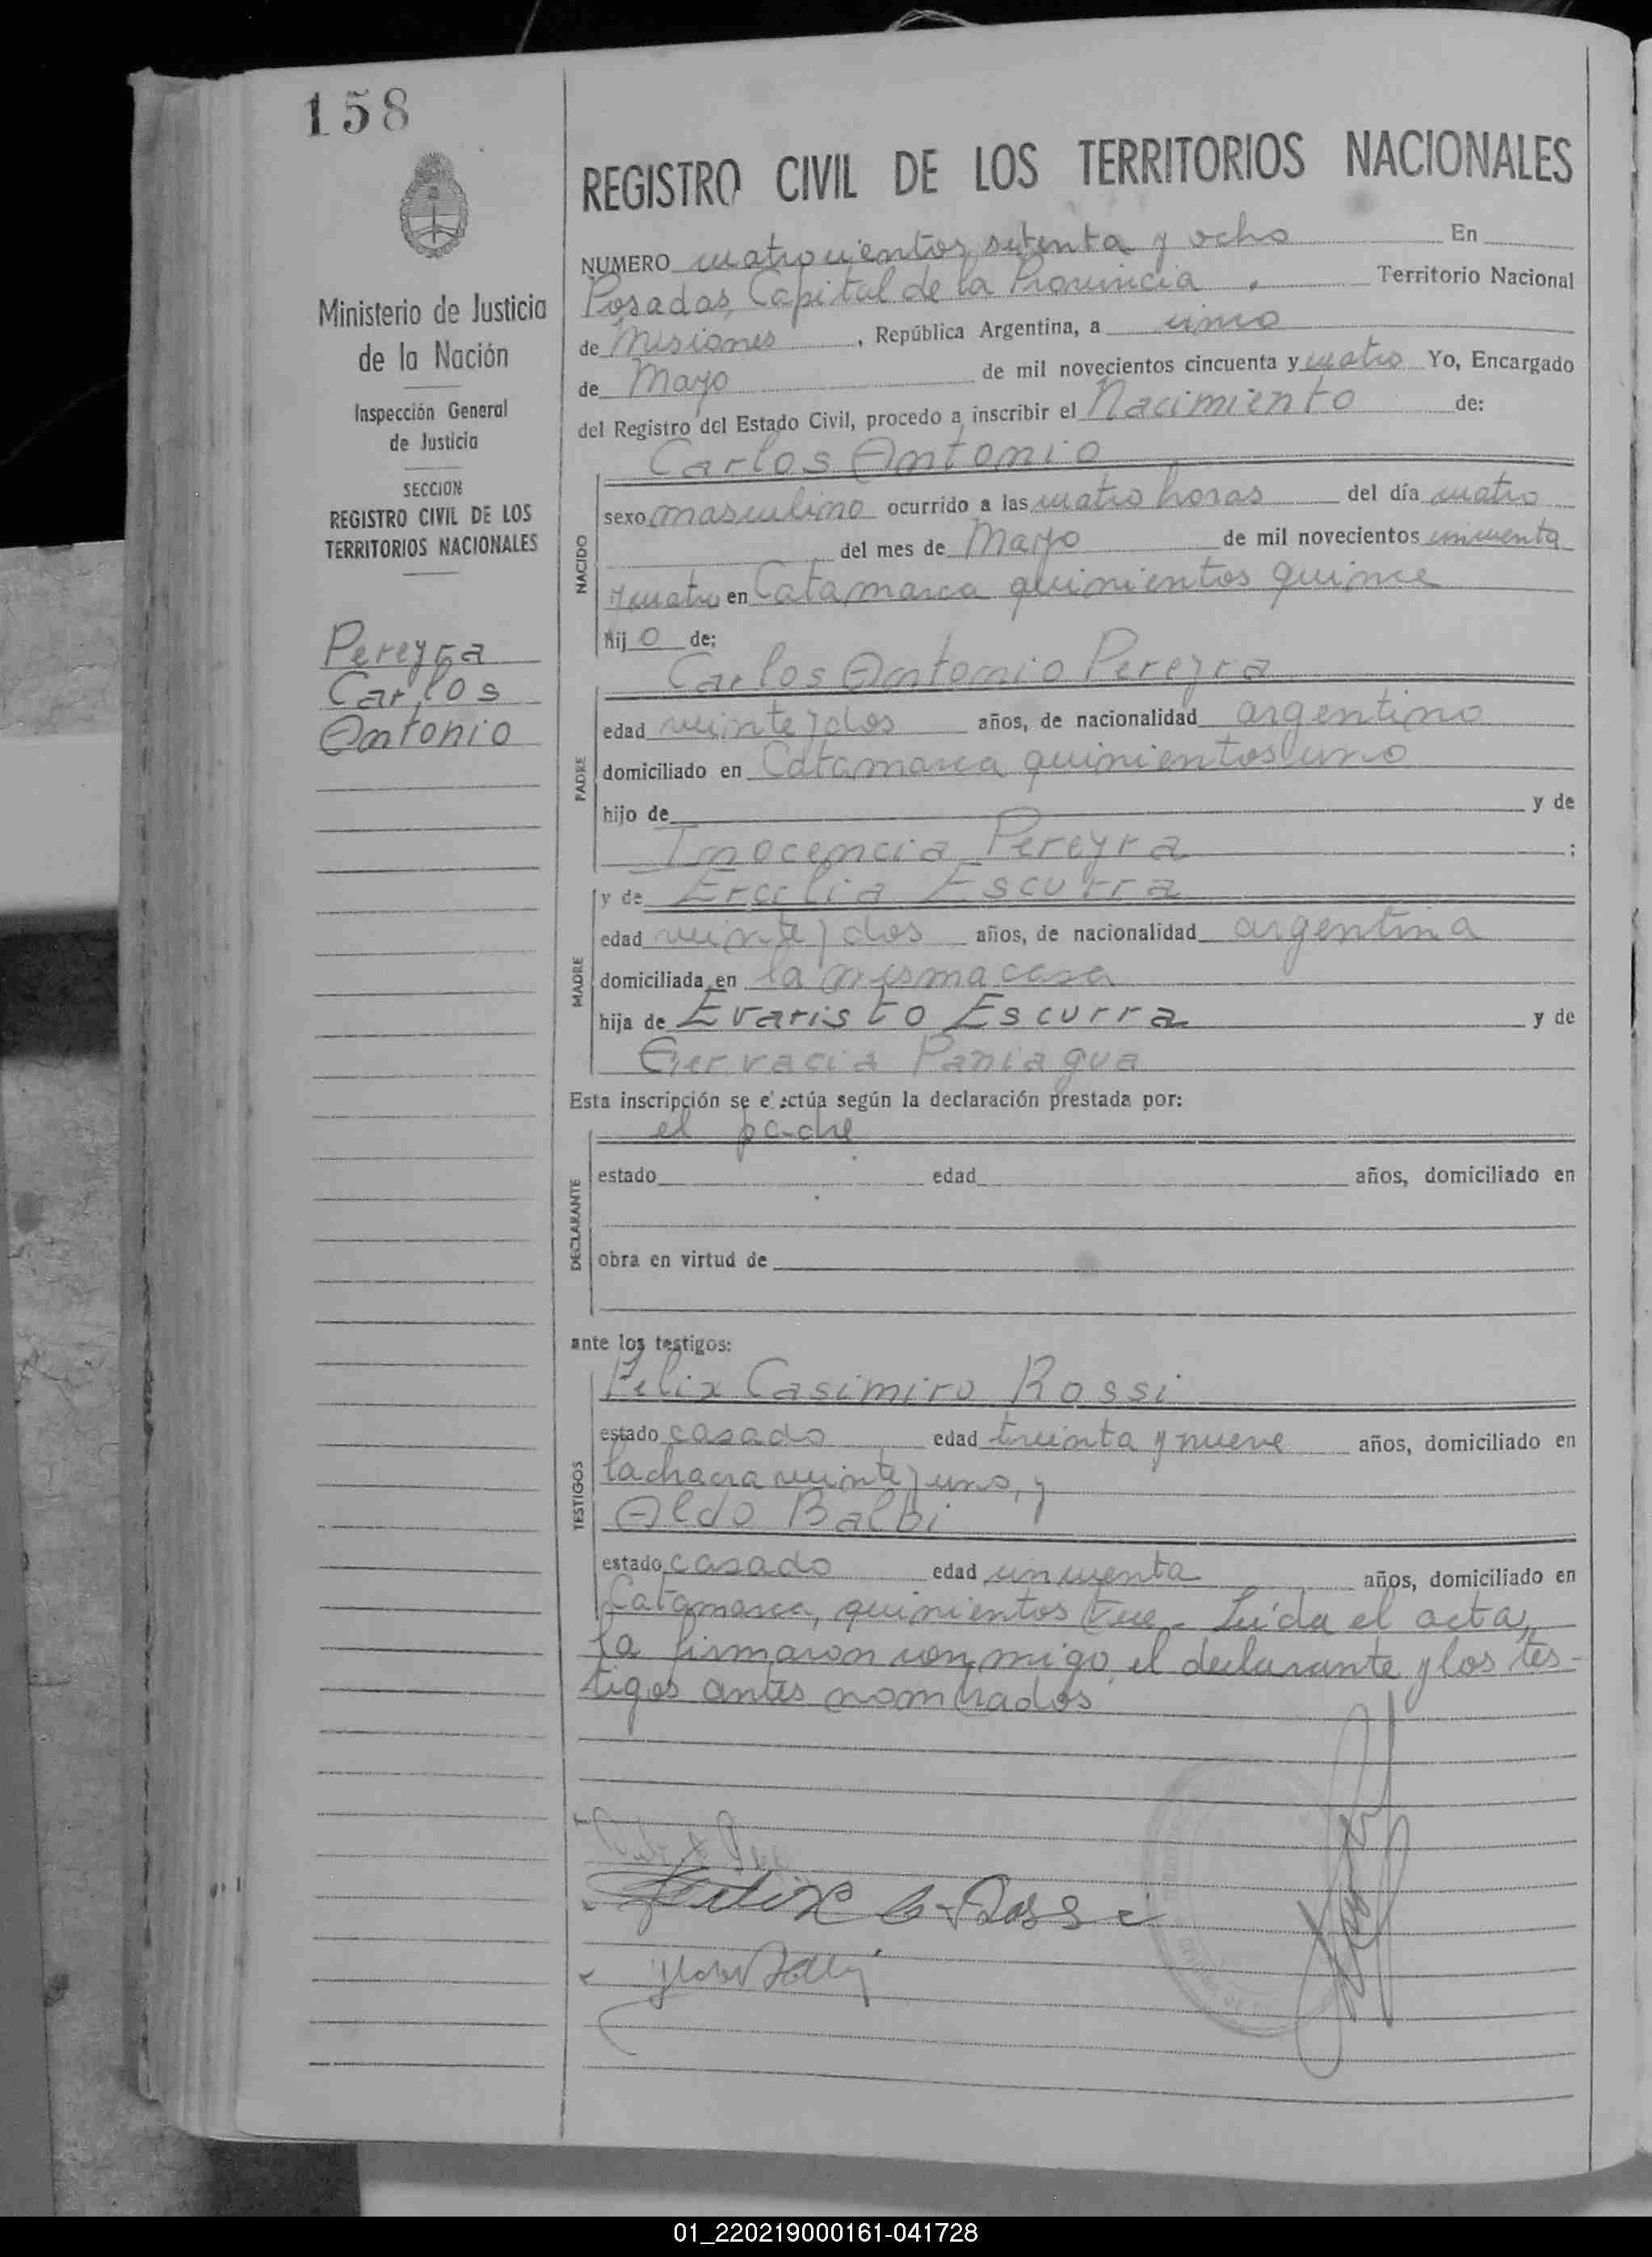 158
REGISTRO CIVIL DE LOS TERRITORIOS NACIONALES
NUMERO cuatrocientos setenta y ocho En
Posadas, Capital de la Provincia Territorio Nacional
de Misiones, República Argentina, a cinco
de Mayo de mil novecientos cincuenta y cuatro Yo, Encargado
del Registro del Estado Civil, procedo a inscribir el Nacimiento de:
Ministerio de Justicia
de la Nación
Inspección General
de Justicia
SECCION
REGISTRO CIVIL DE LOS
TERRITORIOS NACIONALES
Pereyra
Carlos
Antonio
NACIDO
Carlos Antonio
sexo masculino ocurrido a las cuatro horas del día cuatro
del mes de Mayo de mil novecientos cincuenta
y cuatro en Catamarca quinientos quince
hijo de:
PADRE
Carlos Antonio Pereyra
edad veinte y dos años, de nacionalidad argentino
domiciliado en Catamarca quinientos uno
hijo de y de
Inocencia Pereyra ;
MADRE
y de Ercilia Escurra
edad veinte y dos años, de nacionalidad argentina
domiciliada en la misma casa
hija de Evaristo Escurra y de
Gervacia Paniagua
Esta inscripción se efectúa según la declaración prestada por:
DECLARANTE
el padre
estado edad años, domiciliado en
obra en virtud de
ante los testigos:
TESTIGOS
Felix Casimiro Rossi
estado casado edad treinta y nueve años, domiciliado en
la chacra veinte y uno, y
Aldo Balbi
estado casado edad cincuenta años, domiciliado en
Catamarca, quinientos trece. Leída el acta,
la firmaron conmigo, el declarante y los tes-
tigos antes nombrados
Felix C Rossi
01_220219000161-041728